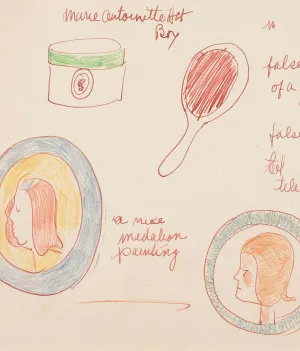 marie antoinette Hat
Box
false
of a
false
tile
a nice
medalion
painting